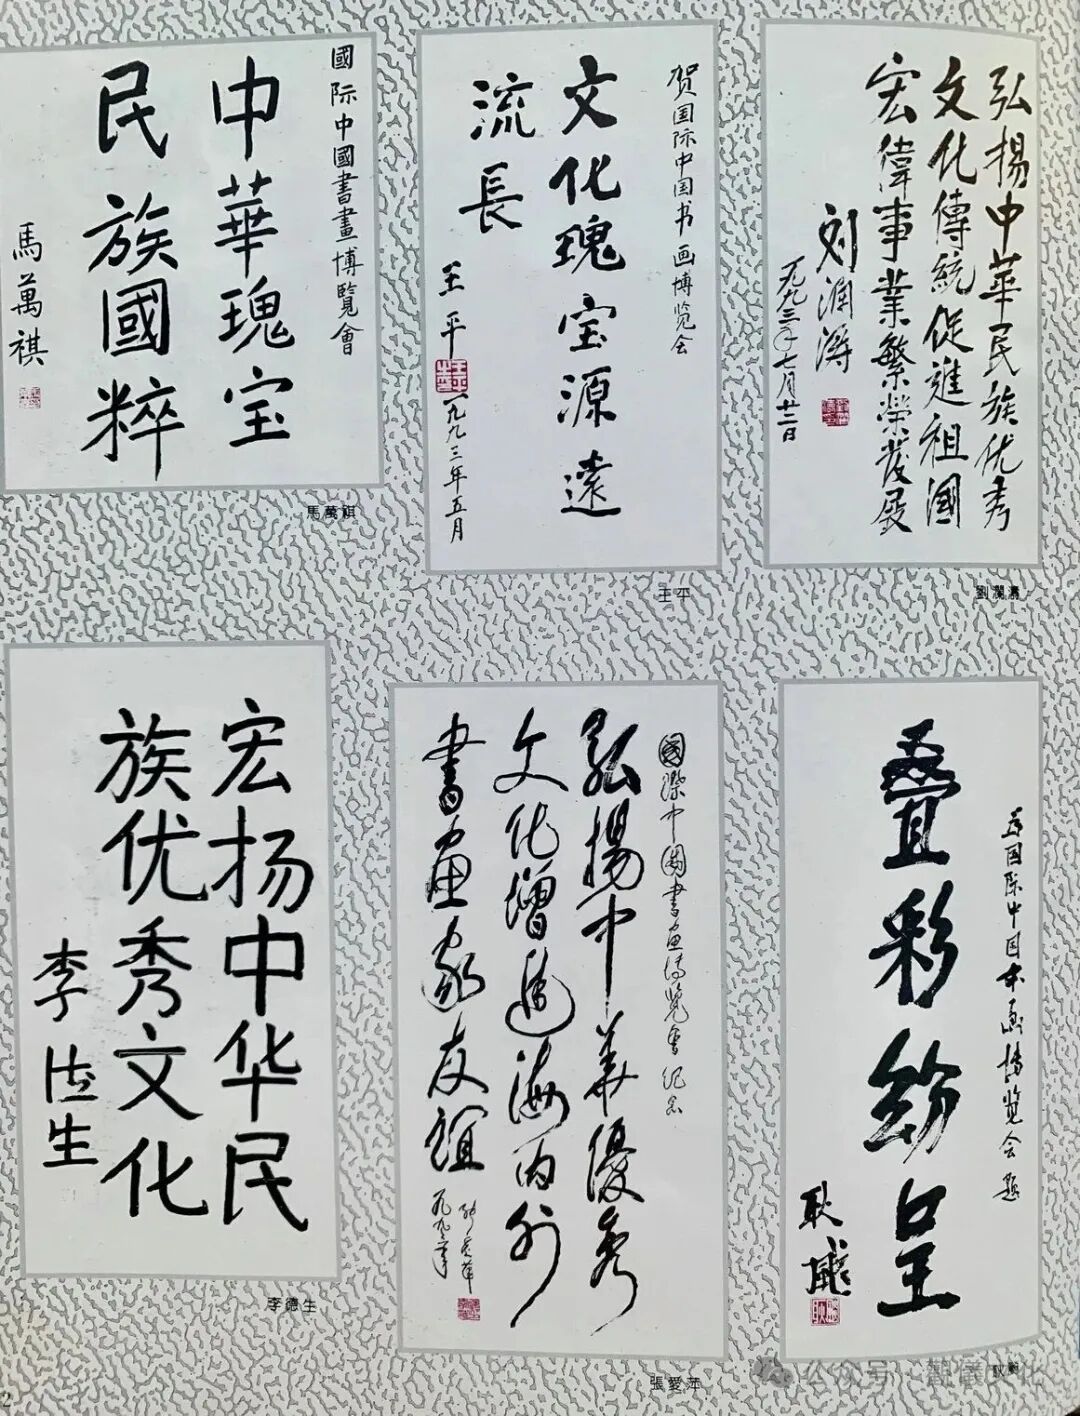 國际中國書畫博覽會
中華瑰宝
民族國粹
馬萬祺
馬萬祺
贺国际中国书画博览会
文化瑰宝源遠
流長
王平
一九九三年五月
王平
弘揚中華民族优秀
文化傳統促進祖國
宏偉事業繁榮發展
刘瀾濤
一九九三年七月廿二日
劉瀾濤
宏扬中华民
族优秀文化
李德生
李德生
國際中國書画博覽會纪念
弘揚中華優秀
文化增進海内外
書画家友誼
張愛萍
一九九三年
張愛萍
为国际中国书画博览会题
叠彩纷呈
耿飚
2
公众号